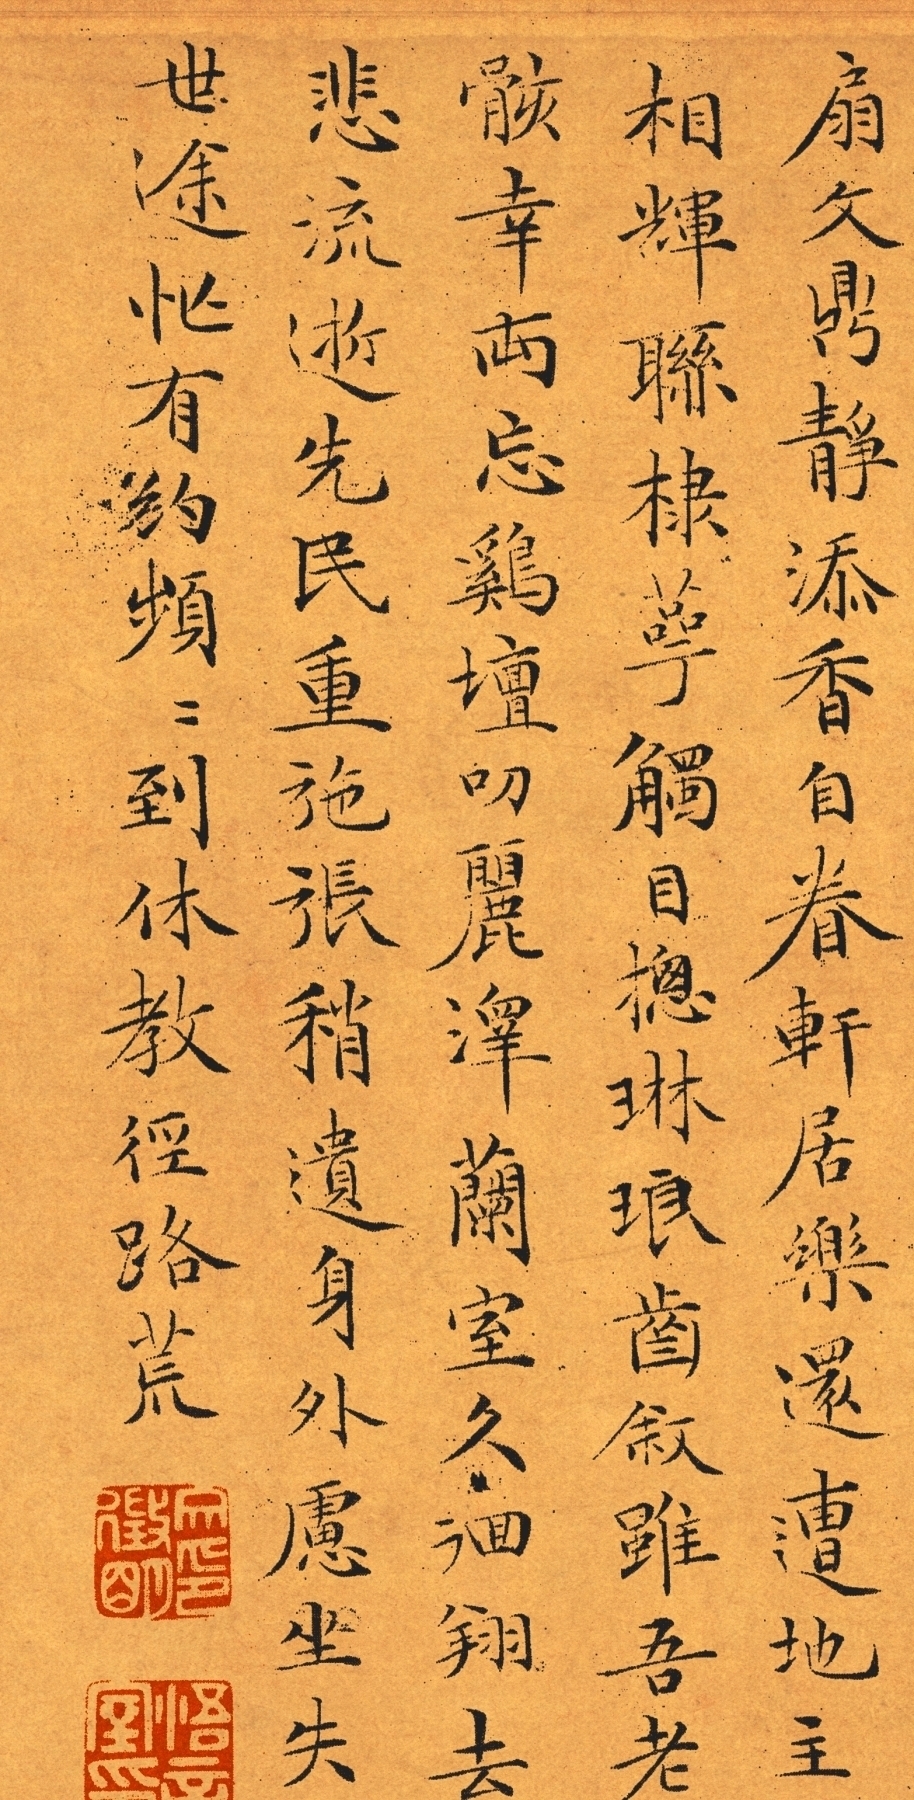 扇文鼎靜添香自眷軒居樂還遭地主
相輝聯棣萼觸目摠琳琅齒敘雖吾老
骸幸兩忘鷄壇叨麗澤蘭室久徊翔去
悲流逝先民重施張稍遺身外慮坐失
世途忙有約頻〻到休教徑路荒
文徵明印
悟言室印